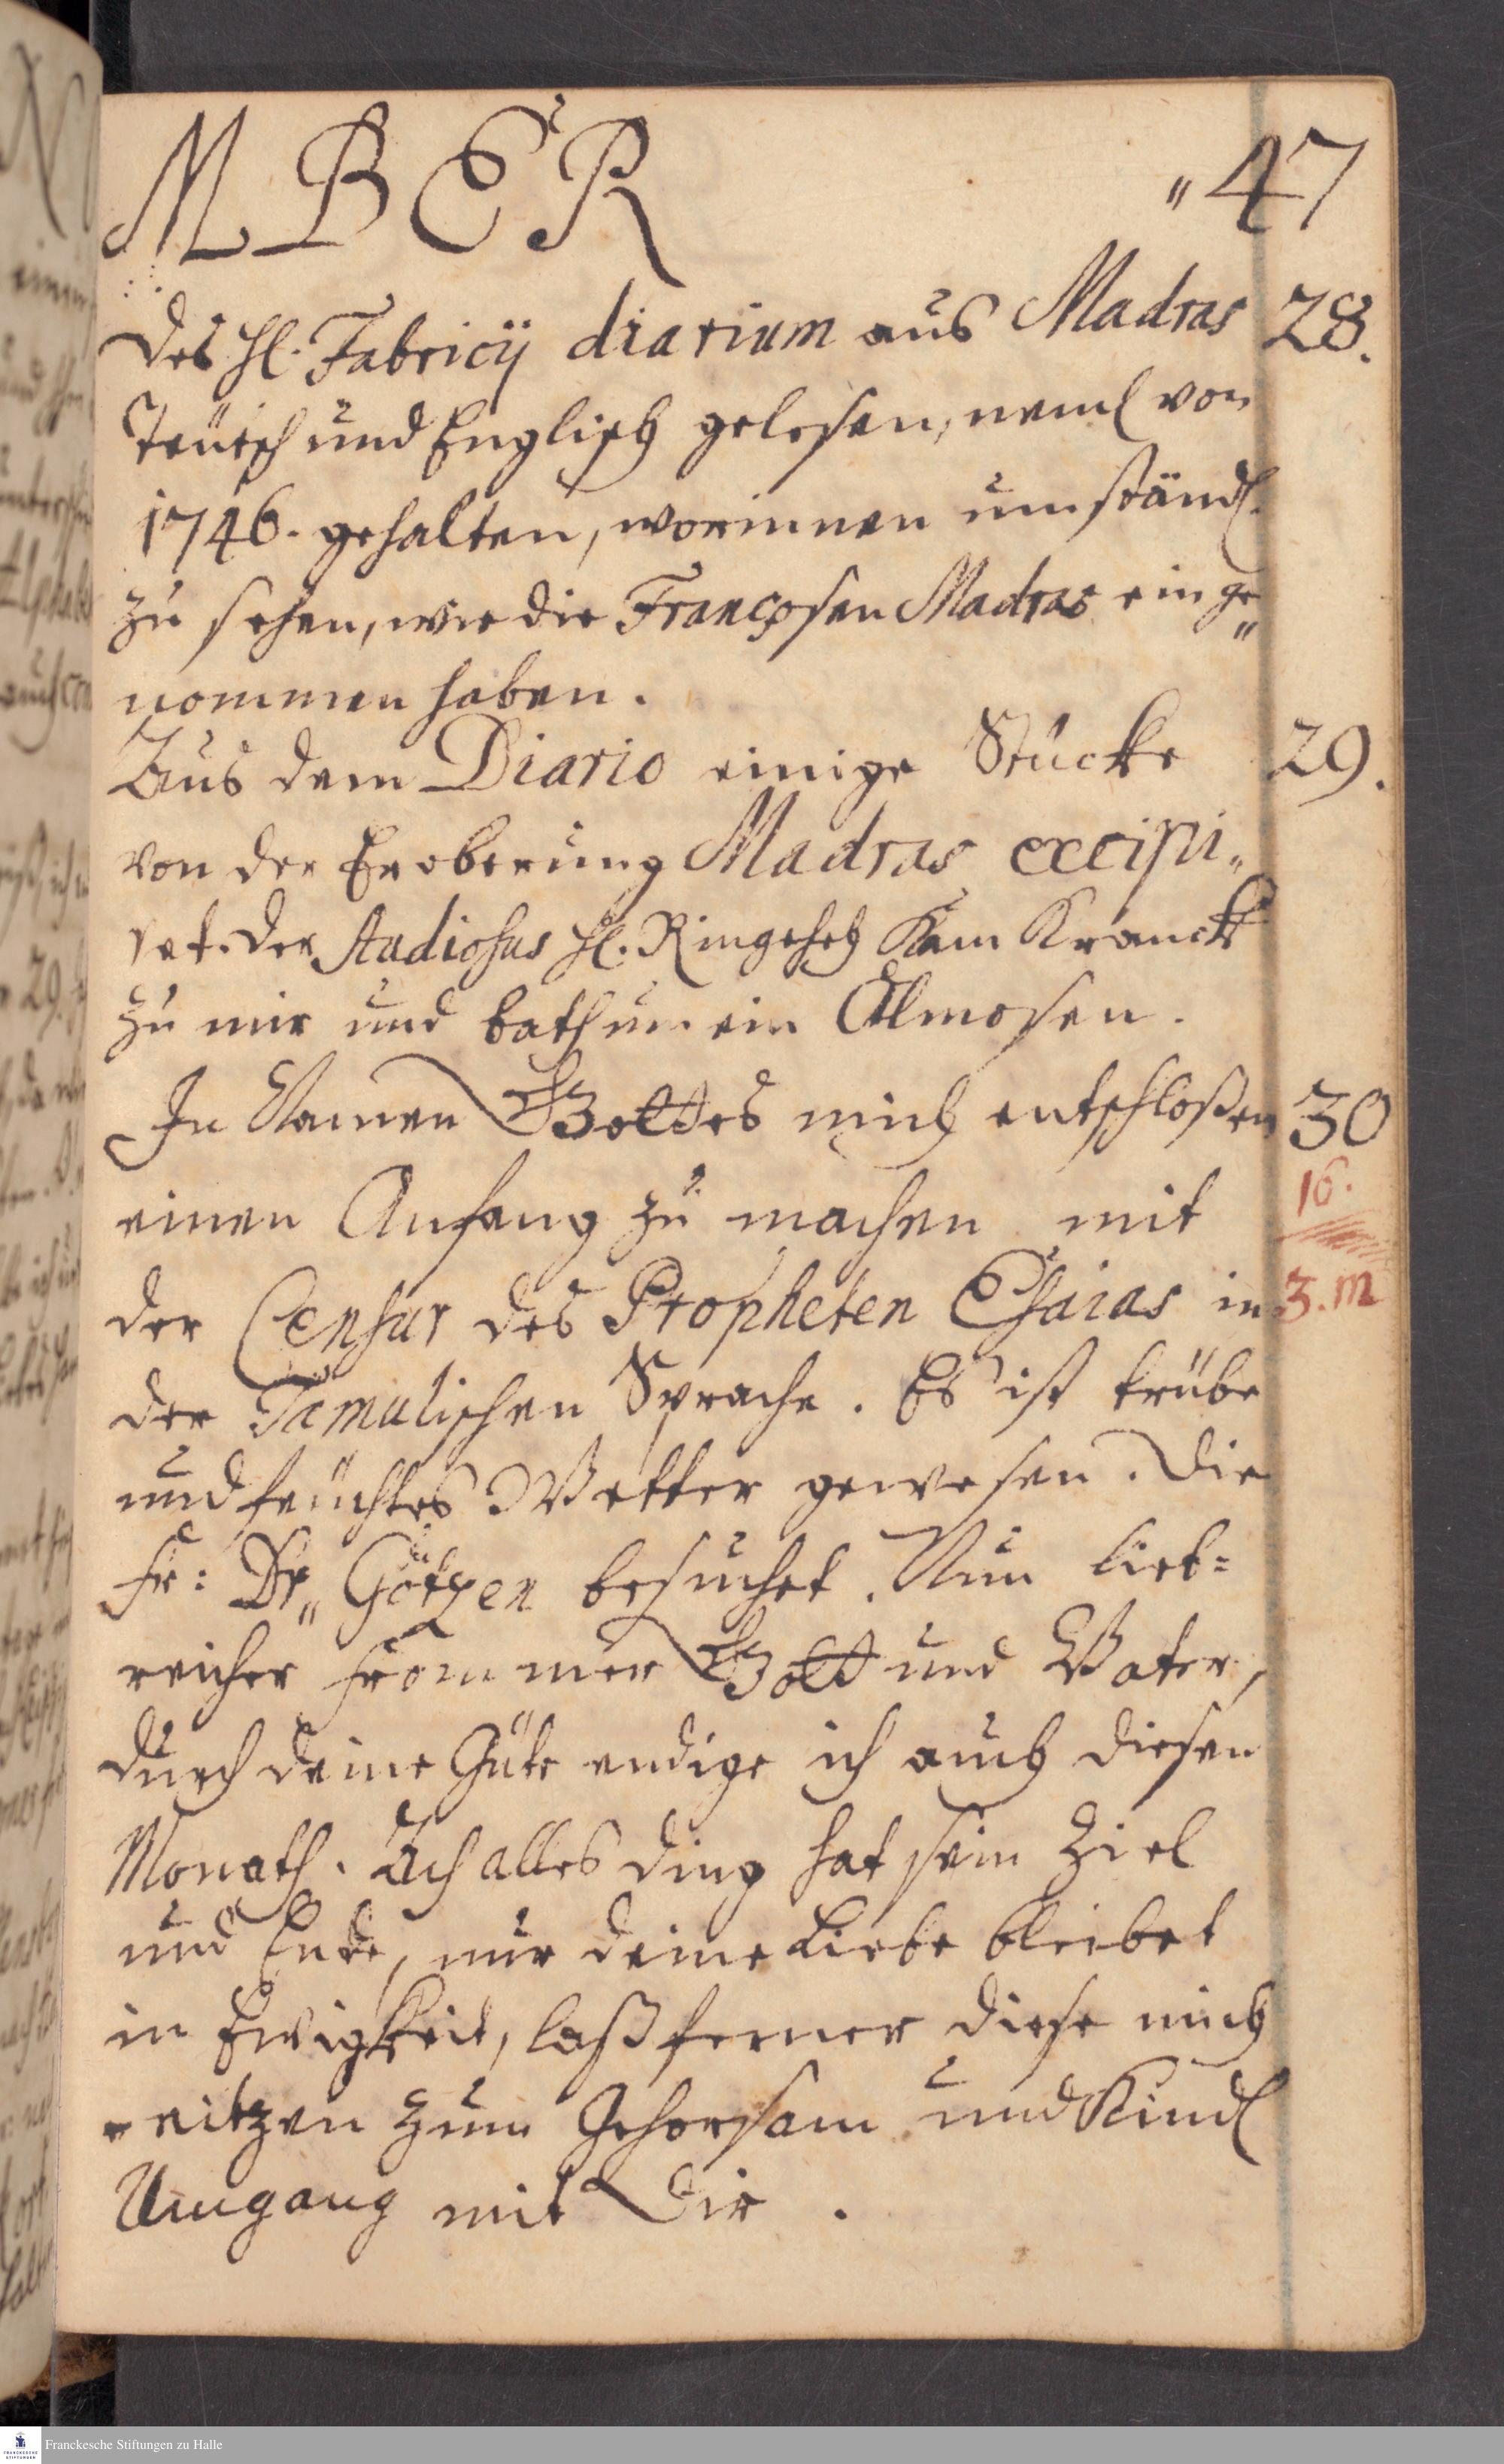 MBER "47
Des H. Fabricÿ diarium aus Madras 28.
Teutsch und Englisch gelesen, neml von
1746. gehalten, worinnen umständl.
zu sehen, wie die Françosen Madras einge"
nommen haben.
Aus dem Diario einige Stücke 29.
von der Eroberung Madras excipi„
ret. Der Studiosus H. Ringeseh Kam Kranck
zu mir und bath um ein Almosen.
In Namen Gottes mich entschloßen 30
einen Anfang zu machen mit 16.
der Censur des Propheten Esaias in 3. m
der Tamulischen Sprache. Es ist trübe
und feuchtes Wetter gewesen. Die
Fr: Dr„ Götzen besuchet. Nun lieb=
reicher frommer Gott und Vater,
durch deine Güte endige ich auch diesen
Monath. Ach alles ding hat sein Ziel
und Ende, nur deine Liebe bleibet
in Ewigkeit, laß ferner diese mich
reitzen zum Gehorsam und Kindl
Umgang mit Dir.
Franckesche Stiftungen zu Halle